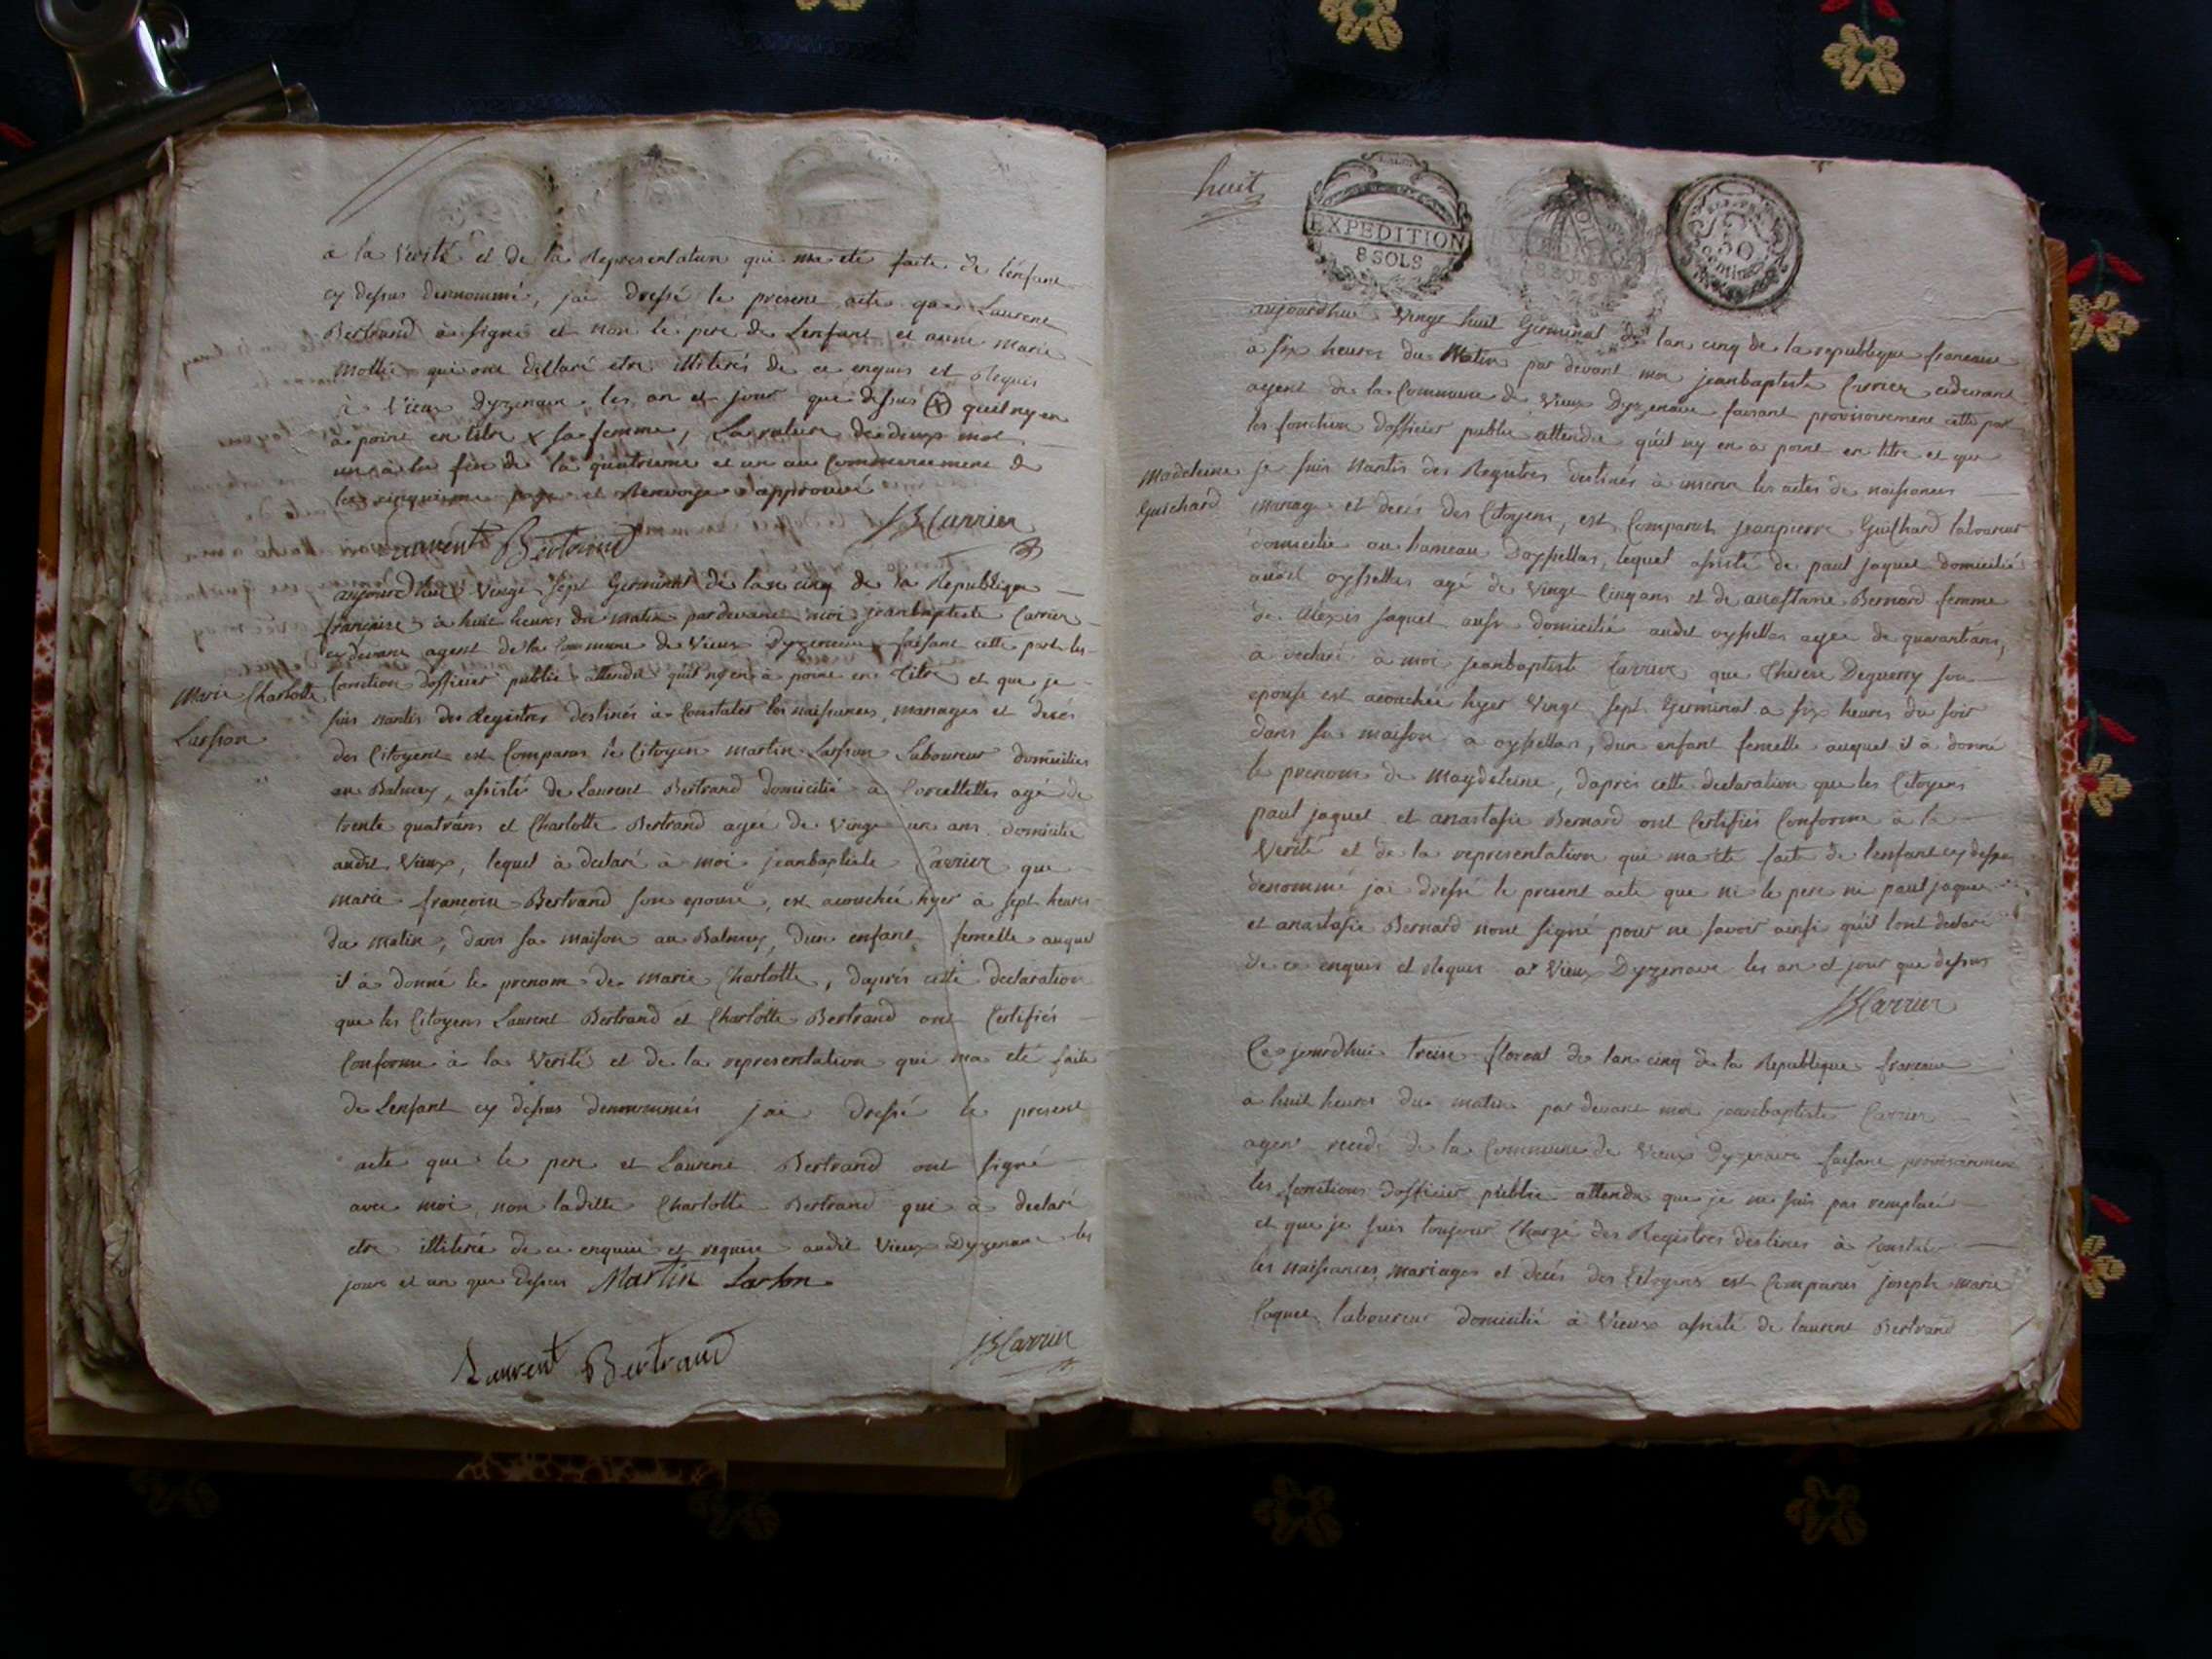 à la Verité et de la Representation qui ma eté faite de Lenfant
cy dessus dennommé, jai dressé le present acte que Laurent
Bertrand à signé et non le pere de Lenfant et anne Marie
Mollie qui ont declaré etre illiterés de ce enquis et Requis
à Vieux Dyzenave les an et jour que dessus quil ny en
a point en titre & sa femme, La rature de deux mot
un à la fin de la quatrieme et un au Commencement de
la cinquieme page et Renvoye approuvé
JB Carrier
Laurent Bertrand
aujourdhui Vingt Sept Germinal de lan cinq de la Republique
francaise à huit heures du matin pardevant moi jeanbaptiste Carrier
cydevant agent de la Commune de Vieux Dyzenave faisant cette part les
fonction dofficier public attendu quil ny en à point en Titre et que je
Marie Charlotte
Larsson
suis nantis des Registres destinés à Constater les naissances, mariages et decés
des Citoyens est Comparus le Citoyen martin Larsson Laboureur domicilies
au Balmey, assisté de Laurent Bertrand domicilié a Corcellettes agé de
trente quatrans et Charlotte Bertrand agée de Vingt un ans domicilie
audit Vieux, lequel à declaré à moi jeanbaptiste Carrier que
marie françoise Bertrand son epouse, est acouchée hyer à sept heures
du matin, dans sa maison au Balmey, dun enfant femelle auquel
il à donné le prenom de Marie Charlotte, dapres cette declaration
que les Citoyens Laurent Bertrand et Charlotte Bertrand ont Certifiés
Conforme à la Verité et de la representation qui ma eté faite
de Lenfant cy dessus dennommés jai dressé le present
acte que le pere et Laurent Bertrand ont signé
avec moi, non laditte Charlotte Bertrand qui à declaré
etre illiterée de ce enquise et requise audit Vieux Dyzenave les
jours et an que dessus Martin Larson
Laurent Bertrand
JB Carrier
huit
EXPEDITION
8 SOLS
50
Centimes
aujourdhui Vingt huit Germinal de lan cinq de la republique francaise
a six heures du Matin par devant moi jeanbaptiste Carrier cidevant
agent de la Commune de Vieux Dyzenave faisant provisoirement cette part
les fonction dofficier public attendu quil ny en a point en titre et que
Madeleine
Guichard
je suis Nantis des Registres destinés à inscrire les actes de naissances
mariage et decés des Citoyens, est Comparus jeanpierre Guichard laboureur
domicilie au hameau Doysellas, lequel assisté de paul jaques domicilié
audit oyssellas agé de Vingt Cinq ans et de anastasie Bernard femme
de Alexis jaquet aussi domicilié audit oyssellas agée de quarantans,
a declaré à moi jeanbaptiste Carrier que Therese Deguerry son
epouse est acouchée hyer Vingt sept Germinal a six heures du soir
dans sa maison a oyssellas, dun enfant femelle auquel il à donné
le prenom de Maydeleine, dapres cette declaration que les Citoyens
paul jaquet et anastasie Bernard ont Certifiés Conforme à la
Verité et de la representation qui ma eté faite de lenfant cy dessus
denommé jai dressé le present acte que ni le pere ni paul jaquet
et anastasie Bernard nont signé pour ne savoir ainsi quil lont declaré
de ce enquis et Requis a Vieux Dyzenave les an et jour que dessus
JB Carrier
Ce jourdhui treize floreal de lan cinq de la Republique francaise
à huit heures du matin par devant moi jeanbaptiste Carrier
agent de la Commune de Vieux Dyzenave faisant provisoirement
les fonctions dofficier public attendu que je ne suis pas remplacé
et que je suis toujour Chargé des Registres destinés à Constater
les naissances, mariages et decés des Citoyens est Comparus joseph marie
jaquet laboureur domicilié à Vieux assisté de laurent Bertrand